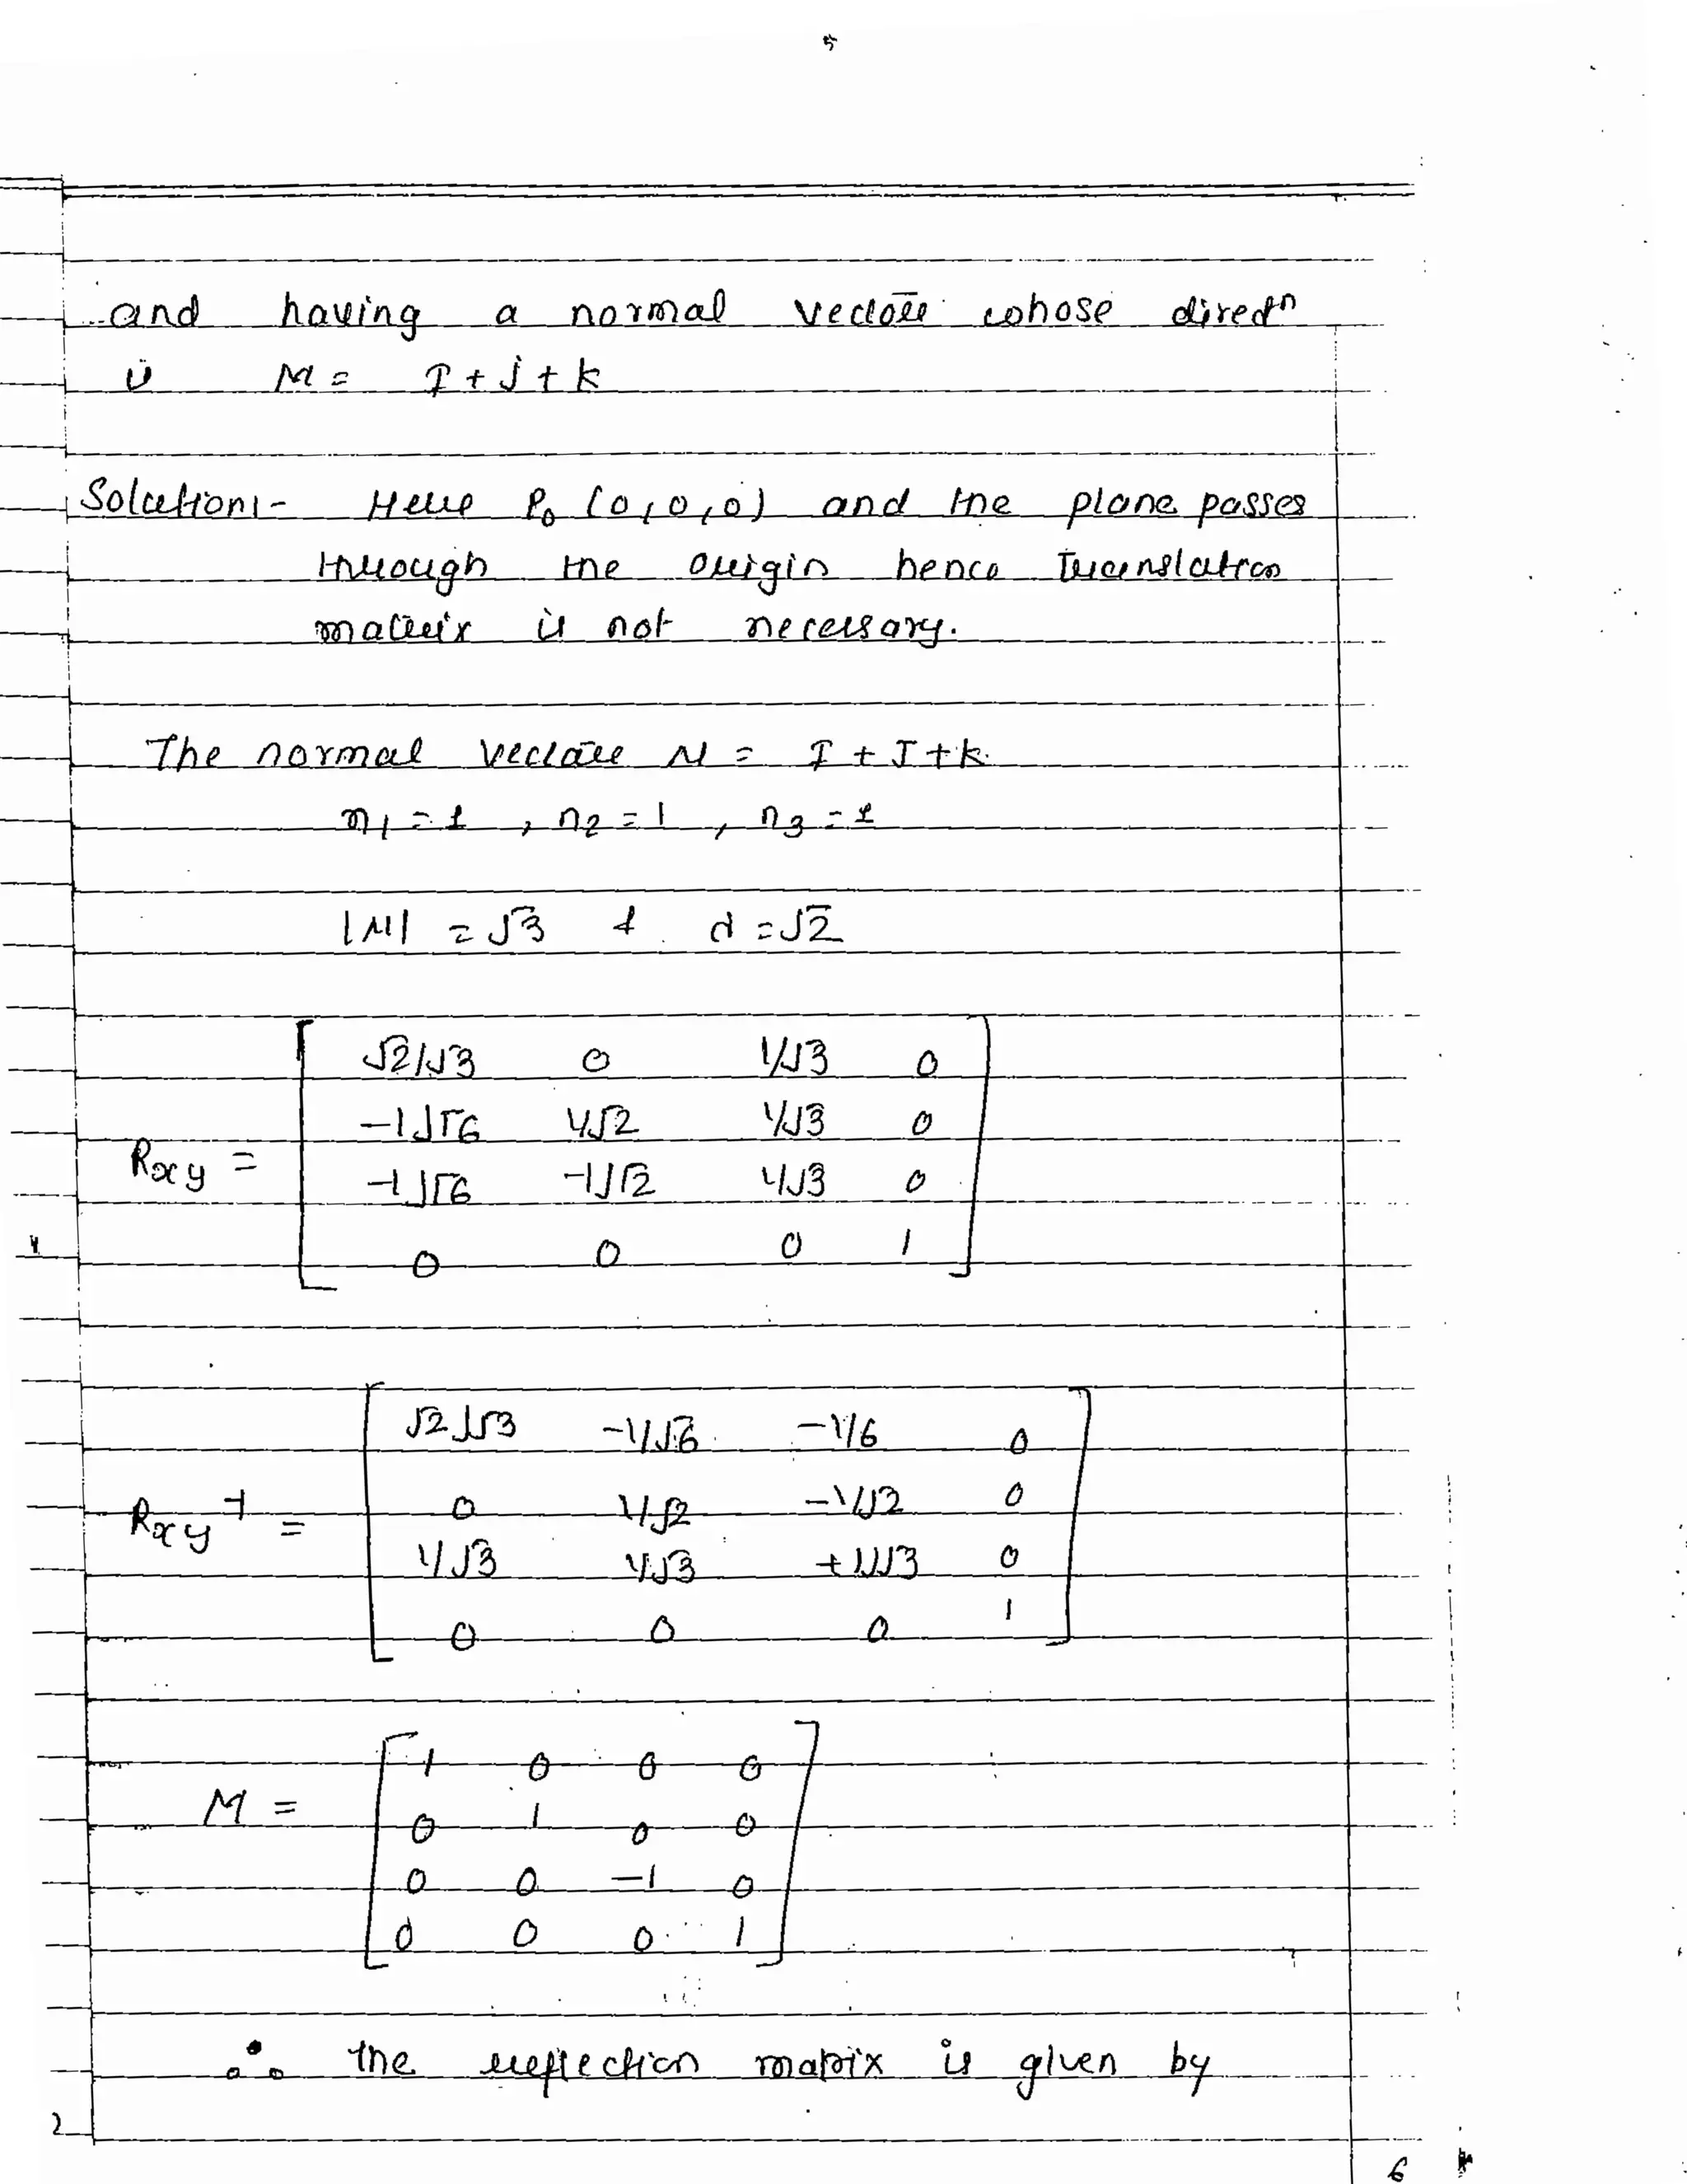 and having a normal vector whose directn
is N = I + J + k
Solution:- Here P0 (0,0,0) and the plane passes
through the origin hence Translation
matrix is not necessary.
The normal vector N = I + J + k
n1 = 1 , n2 = 1 , n3 = 1
|N| = √3 & d = √2
√2/√3 0 1/√3 0
-1/√6 1/√2 1/√3 0
Rxy =
-1/√6 -1/√2 1/√3 0
0 0 0 1
√2/√3 -1/√6 -1/6 0
Rxy-1 = 0 1/√2 -1/√2 0
1/√3 1/√3 +1/√3 0
0 0 0 1
1 0 0 0
M = 0 1 0 0
0 0 -1 0
0 0 0 1
∴ the reflection matrix is given by
2
6